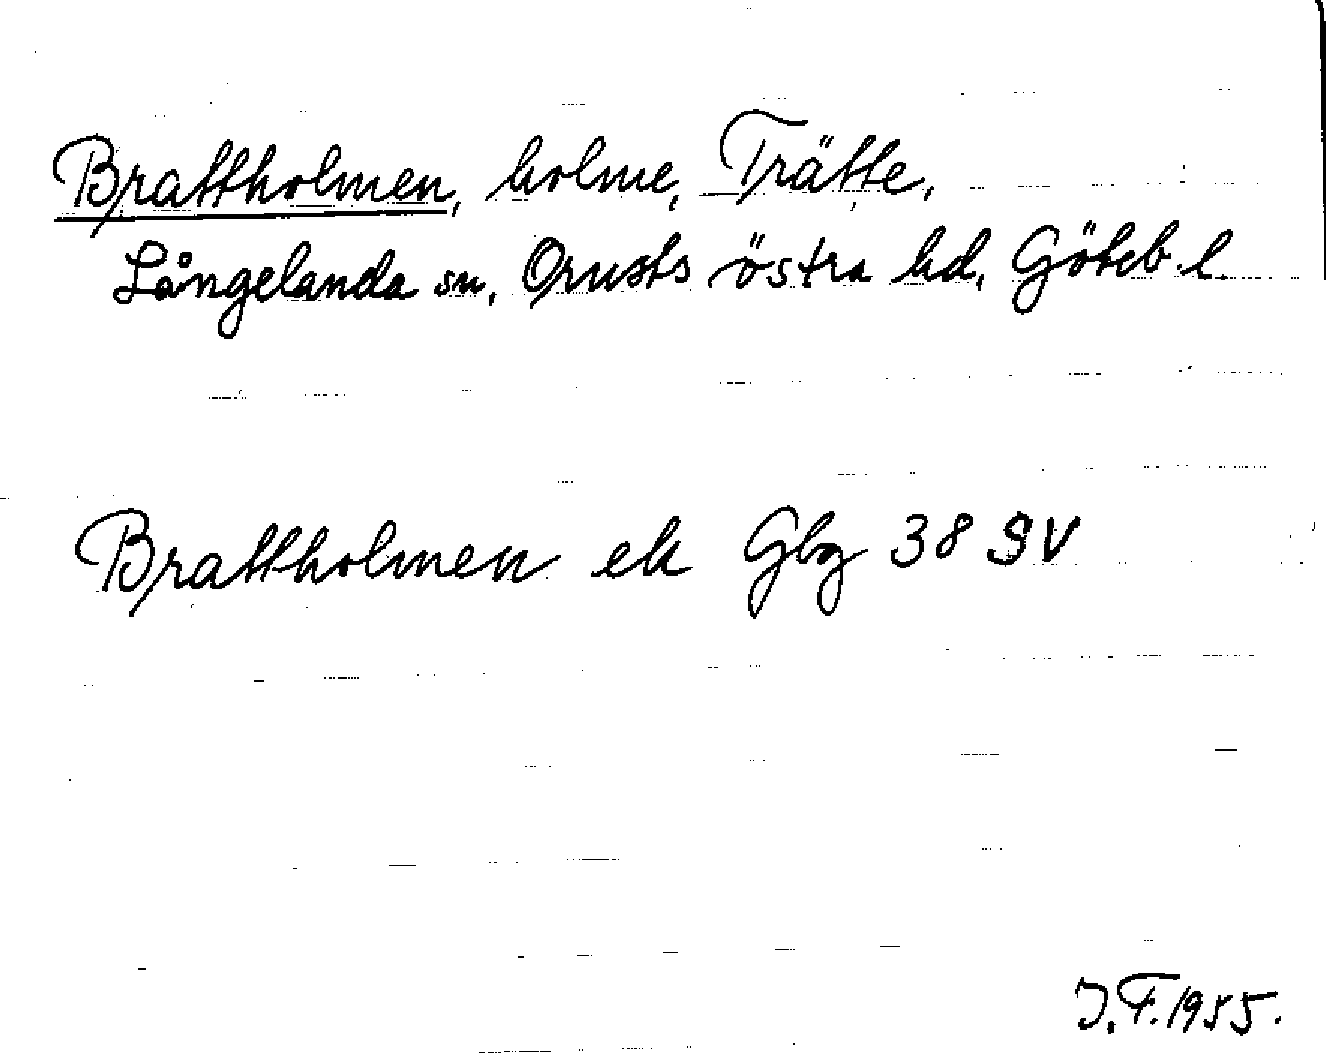 Brattholmen, holme, Trätte,
Långelanda sn, Orusts östra hd, Göteb. l.
Brattholmen ek Gbg 38 SV
J.F. 1955.